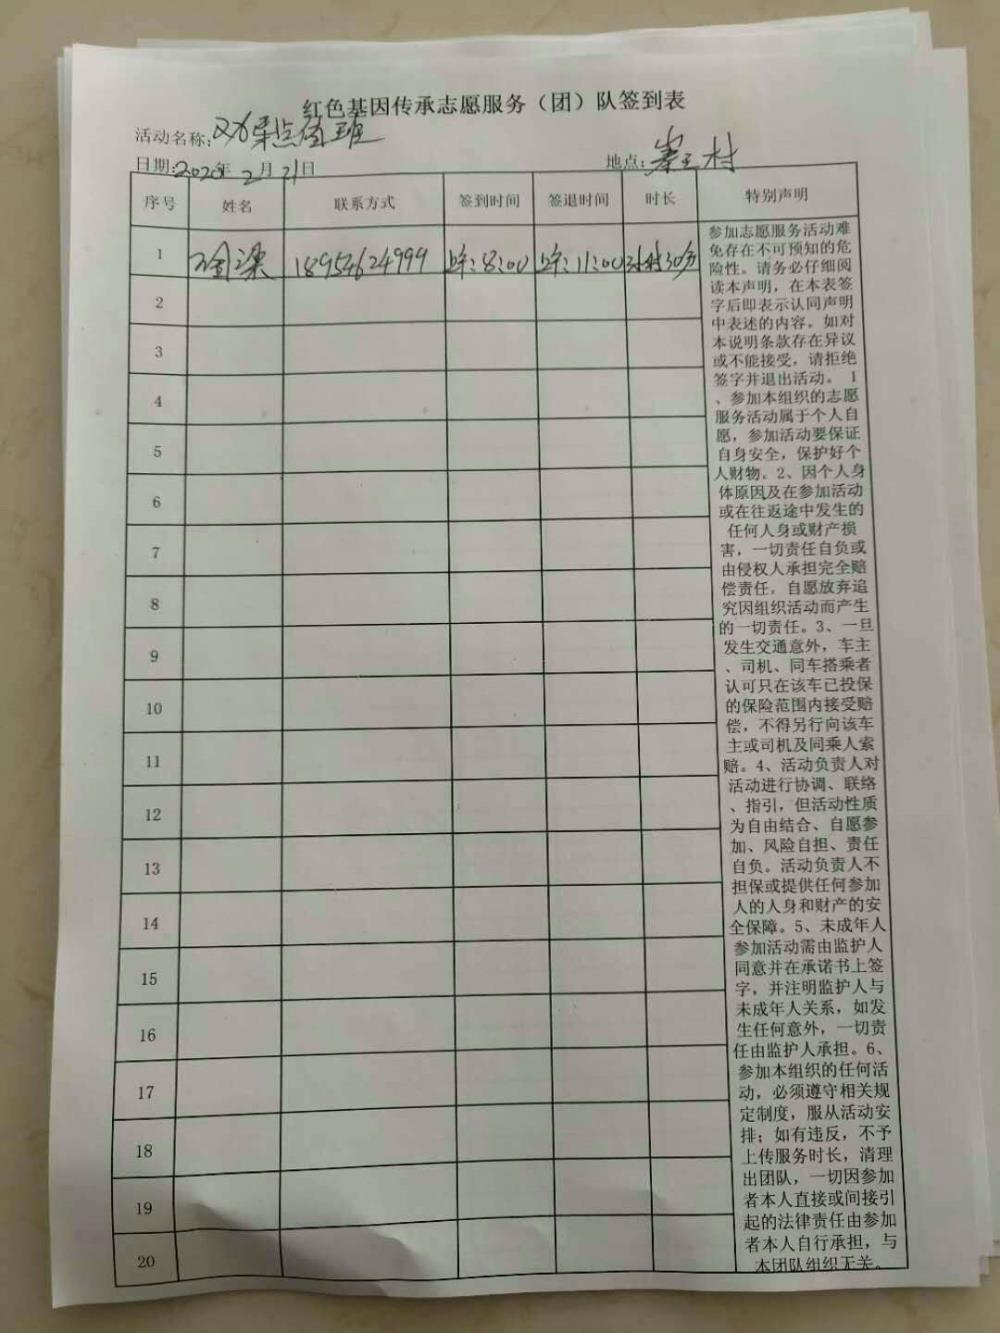 红色基因传承志愿服务（团）队签到表
活动名称：劝导点值班
日期：2020年2月21日 地点：村
序号 姓名 联系方式 签到时间 签退时间 时长 特别声明
1 18954624999 上午：8：00 上午：11：00
2
3
4
5
6
7
8
9
10
11
12
13
14
15
16
17
18
19
20
参加志愿服务活动难
免存在不可预知的危
险性。请务必仔细阅
读本声明，在本表签
字后即表示认同声明
中表述的内容。如对
本说明条款存在异议
或不能接受，请拒绝
签字并退出活动。 1
、参加本组织的志愿
服务活动属于个人自
愿，参加活动要保证
自身安全，保护好个
人财物。2、因个人身
体原因及在参加活动
或在往返途中发生的
任何人身或财产损
害，一切责任自负或
由侵权人承担完全赔
偿责任，自愿放弃追
究因组织活动而产生
的一切责任。3、一旦
发生交通意外，车主
、司机、同车搭乘者
认可只在该车已投保
的保险范围内接受赔
偿，不得另行向该车
主或司机及同乘人索
赔。4、活动负责人对
活动进行协调、联络
、指引，但活动性质
为自由结合、自愿参
加、风险自担、责任
自负。活动负责人不
担保或提供任何参加
人的人身和财产的安
全保障。5、未成年人
参加活动需由监护人
同意并在承诺书上签
字，并注明监护人与
未成年人关系，如发
生任何意外，一切责
任由监护人承担。6、
参加本组织的任何活
动，必须遵守相关规
定制度，服从活动安
排；如有违反，不予
上传服务时长，清理
出团队，一切因参加
者本人直接或间接引
起的法律责任由参加
者本人自行承担，与
本团队组织无关。